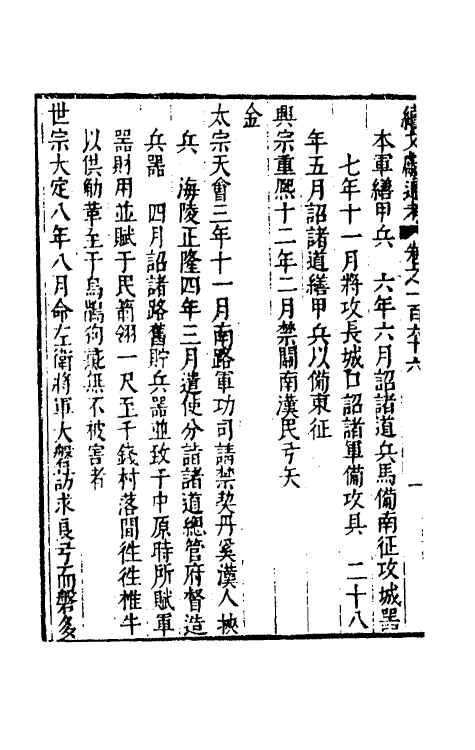 續文獻通考 卷之一百六十六 一
本軍繕甲兵　六年六月詔諸道兵馬備南征攻城器
七年十一月將攻長城口詔諸軍備攻具　二十八
年五月詔諸道繕甲兵以備東征
興宗重熙十二年二月禁關南漢民弓矢
金
太宗天會三年十一月南路軍功司請禁契丹奚漢人挾
兵　海陵正隆四年三月遣使分詣諸道總管府督造
兵器　四月詔諸路舊貯兵器並致于中原時所賦軍
器財用並賦于民箭翎一尺至千錢村落間徃徃椎牛
以供觔革至于烏鵲狗彘無不被害者
世宗大定八年八月命左衛將軍大磐訪求良弓而磐多